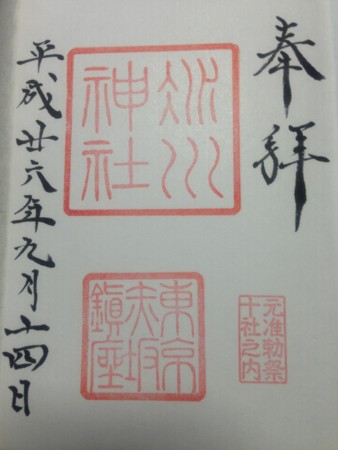 奉拝
氷川
神社
元准勅祭
十社之内
東京
赤坂
鎮座
平成廿六年九月十四日